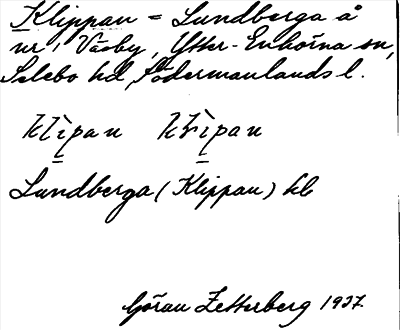 Klippan = Lundberga å
nr 1 Väsby, Ytter-Enhörna sn,
Selebo hd, Södermanlands l.
klìpan klìpan
Lundberga (Klippan) hb
Göran Zetterberg 1937.